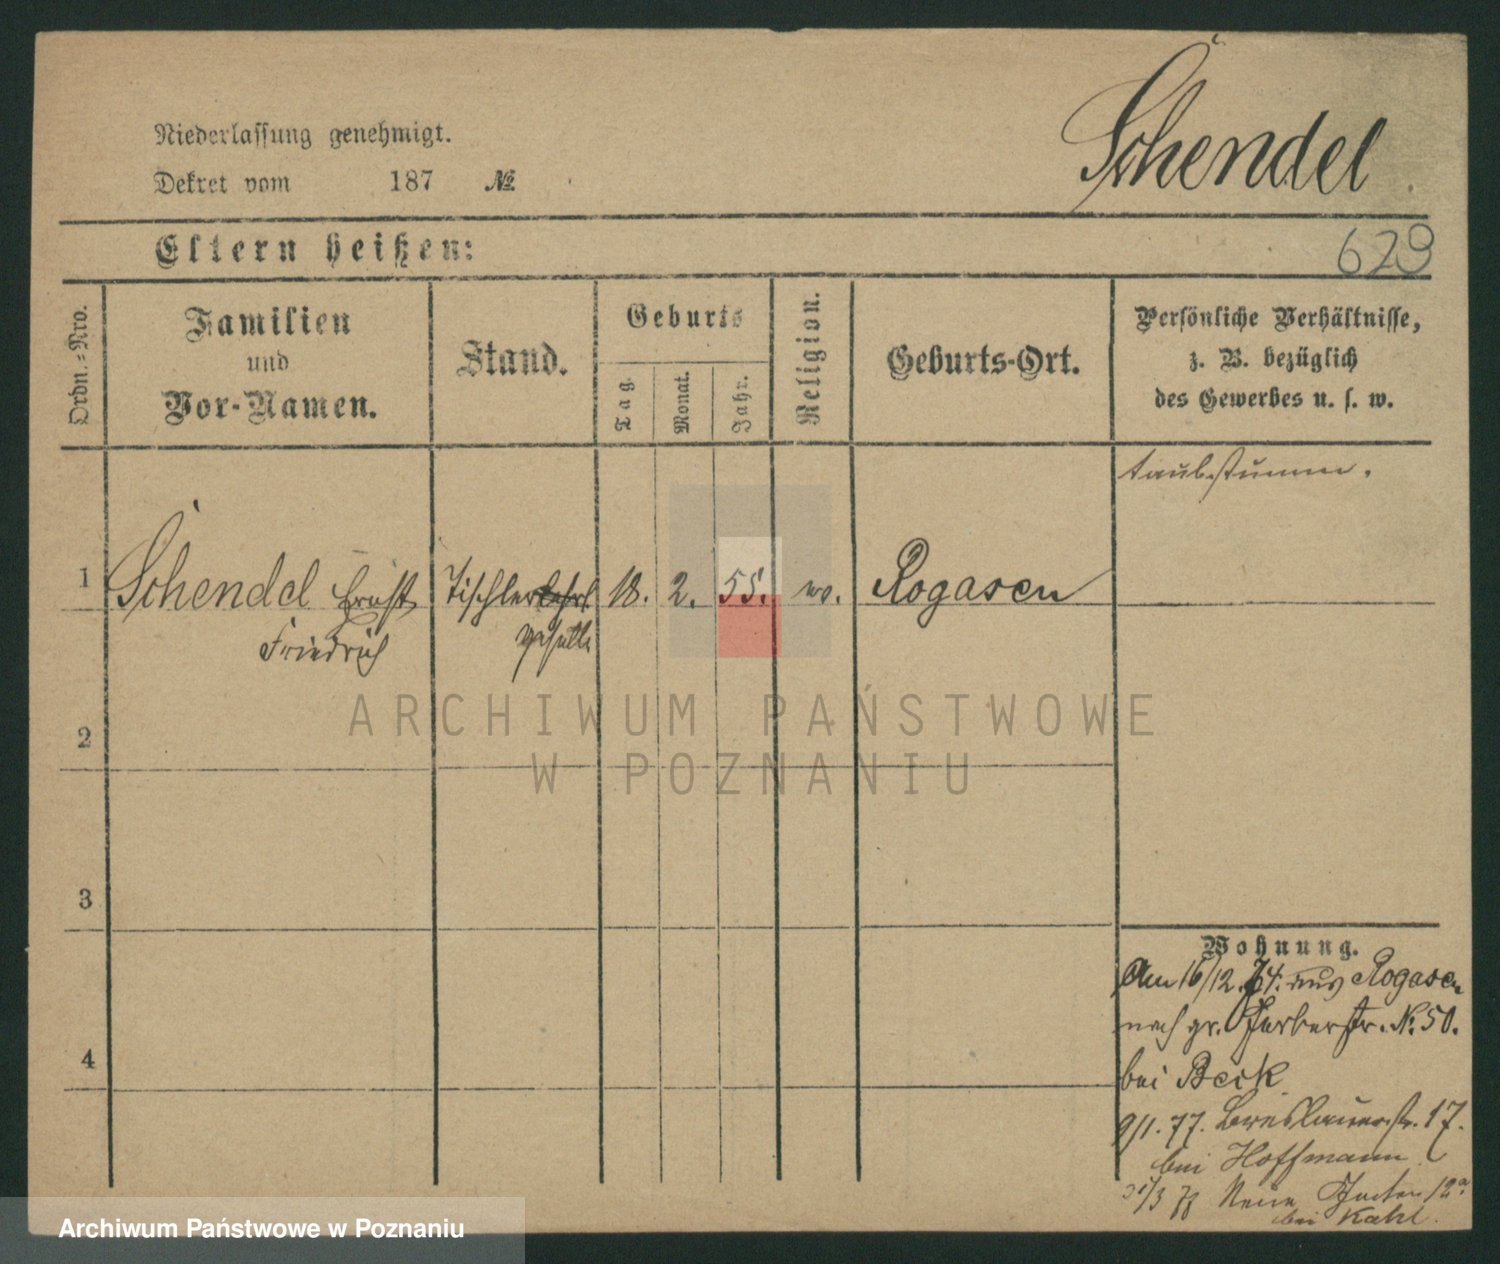 Schendel
Niederlassung genehmigt.
Dekret vom 187 №
Eltern heißen:
629
Ordn.-Nro.
Familien
und
Vor-Namen.
Stand.
Geburts
Tag.
Monat.
Jahr.
Religion.
Geburts-Ort.
Persönliche Verhältnisse,
z. B. bezüglich
des Gewerbes u. s. w.
taubstumm.
1 Schendel Ernst Tischlerlehrl 18. 2. 55. ev. Rogasen
Friedrich geselle
2
3
4
Wohnung.
Am 16/12. 74. aus Rogasen
nach gr. Gerberstr. № 50.
bei Beck
9/1. 77. Breslauerstr. 17.
bei Hoffmann
/3 78 Neue 12a
bei Kahl.
ARCHIWUM PAŃSTWOWE
W POZNANIU
Archiwum Państwowe w Poznaniu